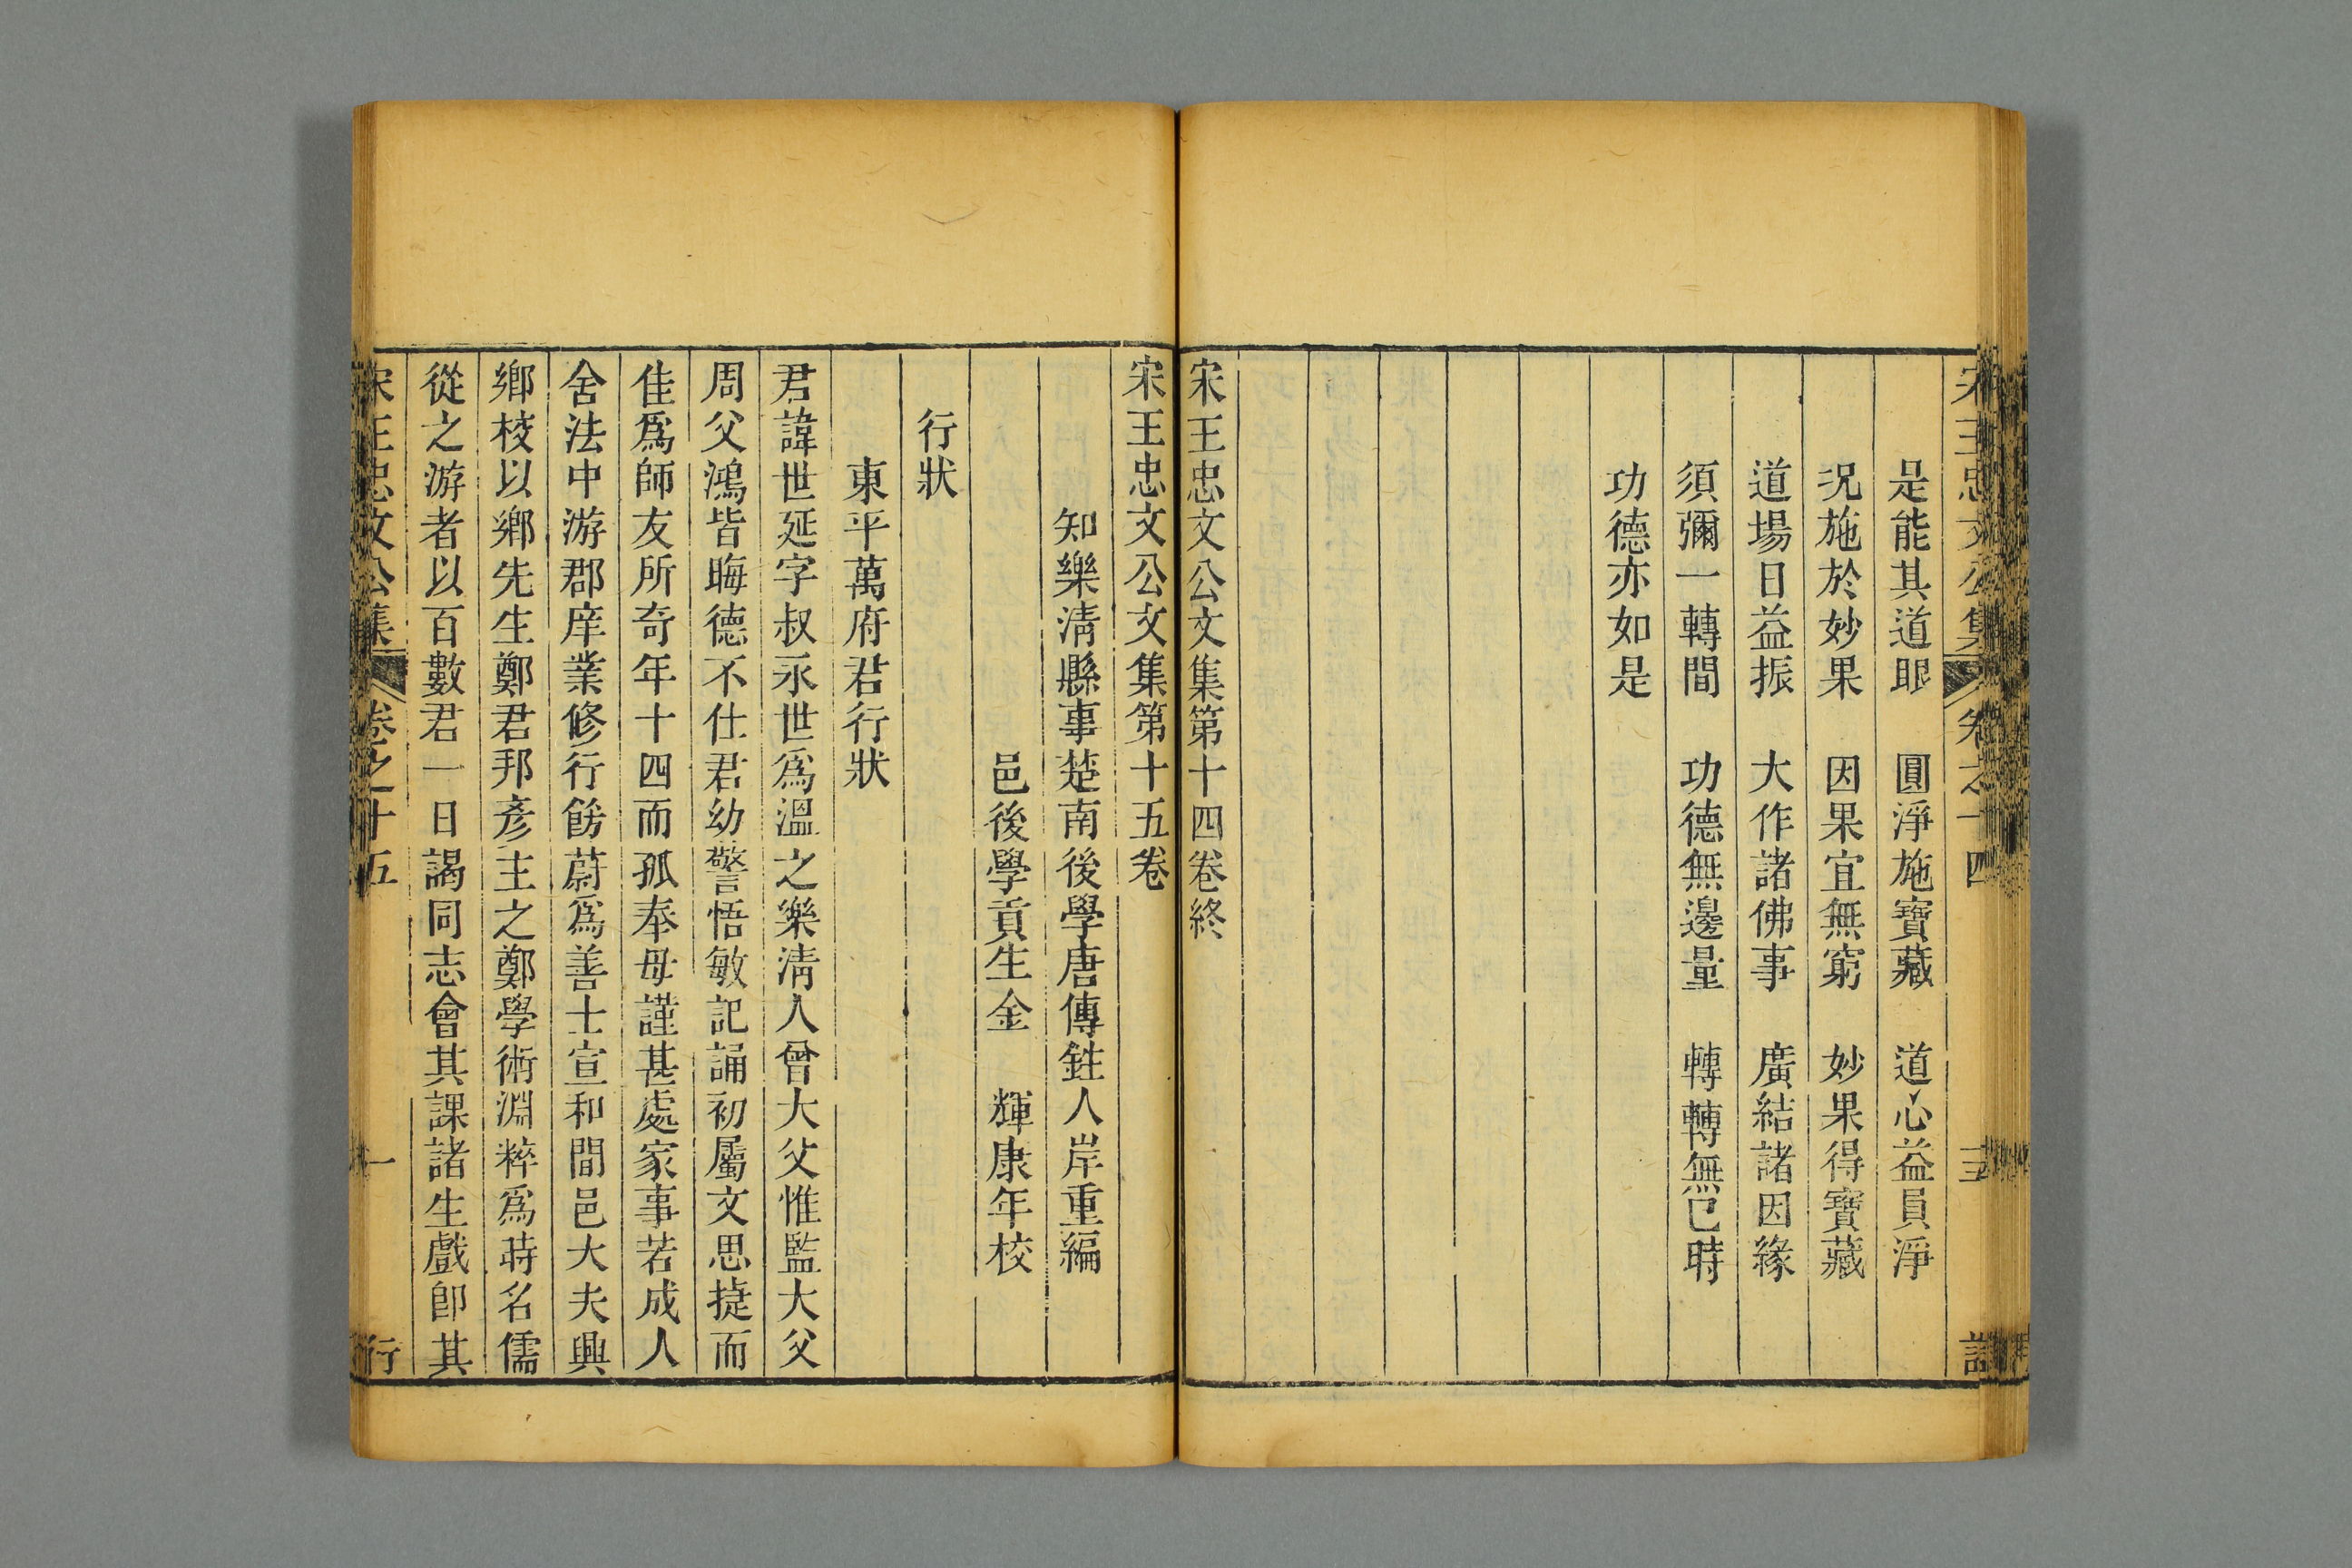 宋王忠文公集 卷之十四 詩
是能其道眼 圓淨施寶藏 道心益員淨
况施於妙果 因果宜無窮 妙果得寶藏
道場日益振 大作諸佛事 廣結諸因緣
須彌一轉間 功德無邊量 轉轉無已時
功德亦如是
宋王忠文公文集第十四卷終
宋王忠文公文集第十五卷
知樂清縣事楚南後學唐傳鉎人岸重編
邑後學貢生金 輝康年校
行狀
東平萬府君行狀
君諱世延字叔永世爲溫之樂清人曾大父惟監大父
周父鴻皆晦德不仕君幼警悟敏記誦初屬文思㨗而
佳爲師友所奇年十四而孤奉母謹甚處家事若成人
舍法中游郡庠業修行餝蔚爲善士宣和間邑大夫興
鄉校以鄉先生鄭君邦彥主之鄭學術淵粹爲時名儒
從之游者以百數君一日謁同志會其課諸生戲卽其
宋王忠文公集 卷之十五 一 行